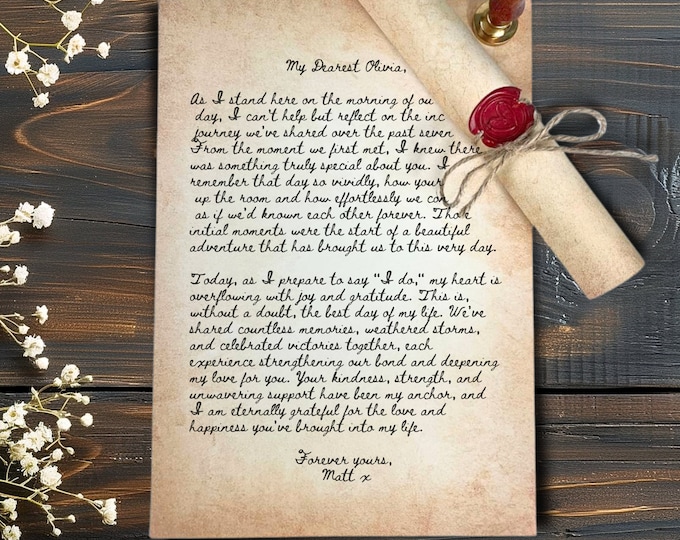 My Dearest Olivia,
As I stand here on the morning of ou
day, I can't help but reflect on the inc
journey we've shared over the past seven
From the moment we first met, I knew there
was something truly special about you. I
remember that day so vividly, how your
up the room and how effortlessly we con
as if we'd known each other forever. Those
initial moments were the start of a beautiful
adventure that has brought us to this very day.
Today, as I prepare to say "I do," my heart is
overflowing with joy and gratitude. This is,
without a doubt, the best day of my life. We've
shared countless memories, weathered storms,
and celebrated victories together, each
experience strengthening our bond and deepening
my love for you. Your kindness, strength, and
unwavering support have been my anchor, and
I am eternally grateful for the love and
happiness you've brought into my life.
Forever yours,
Matt x